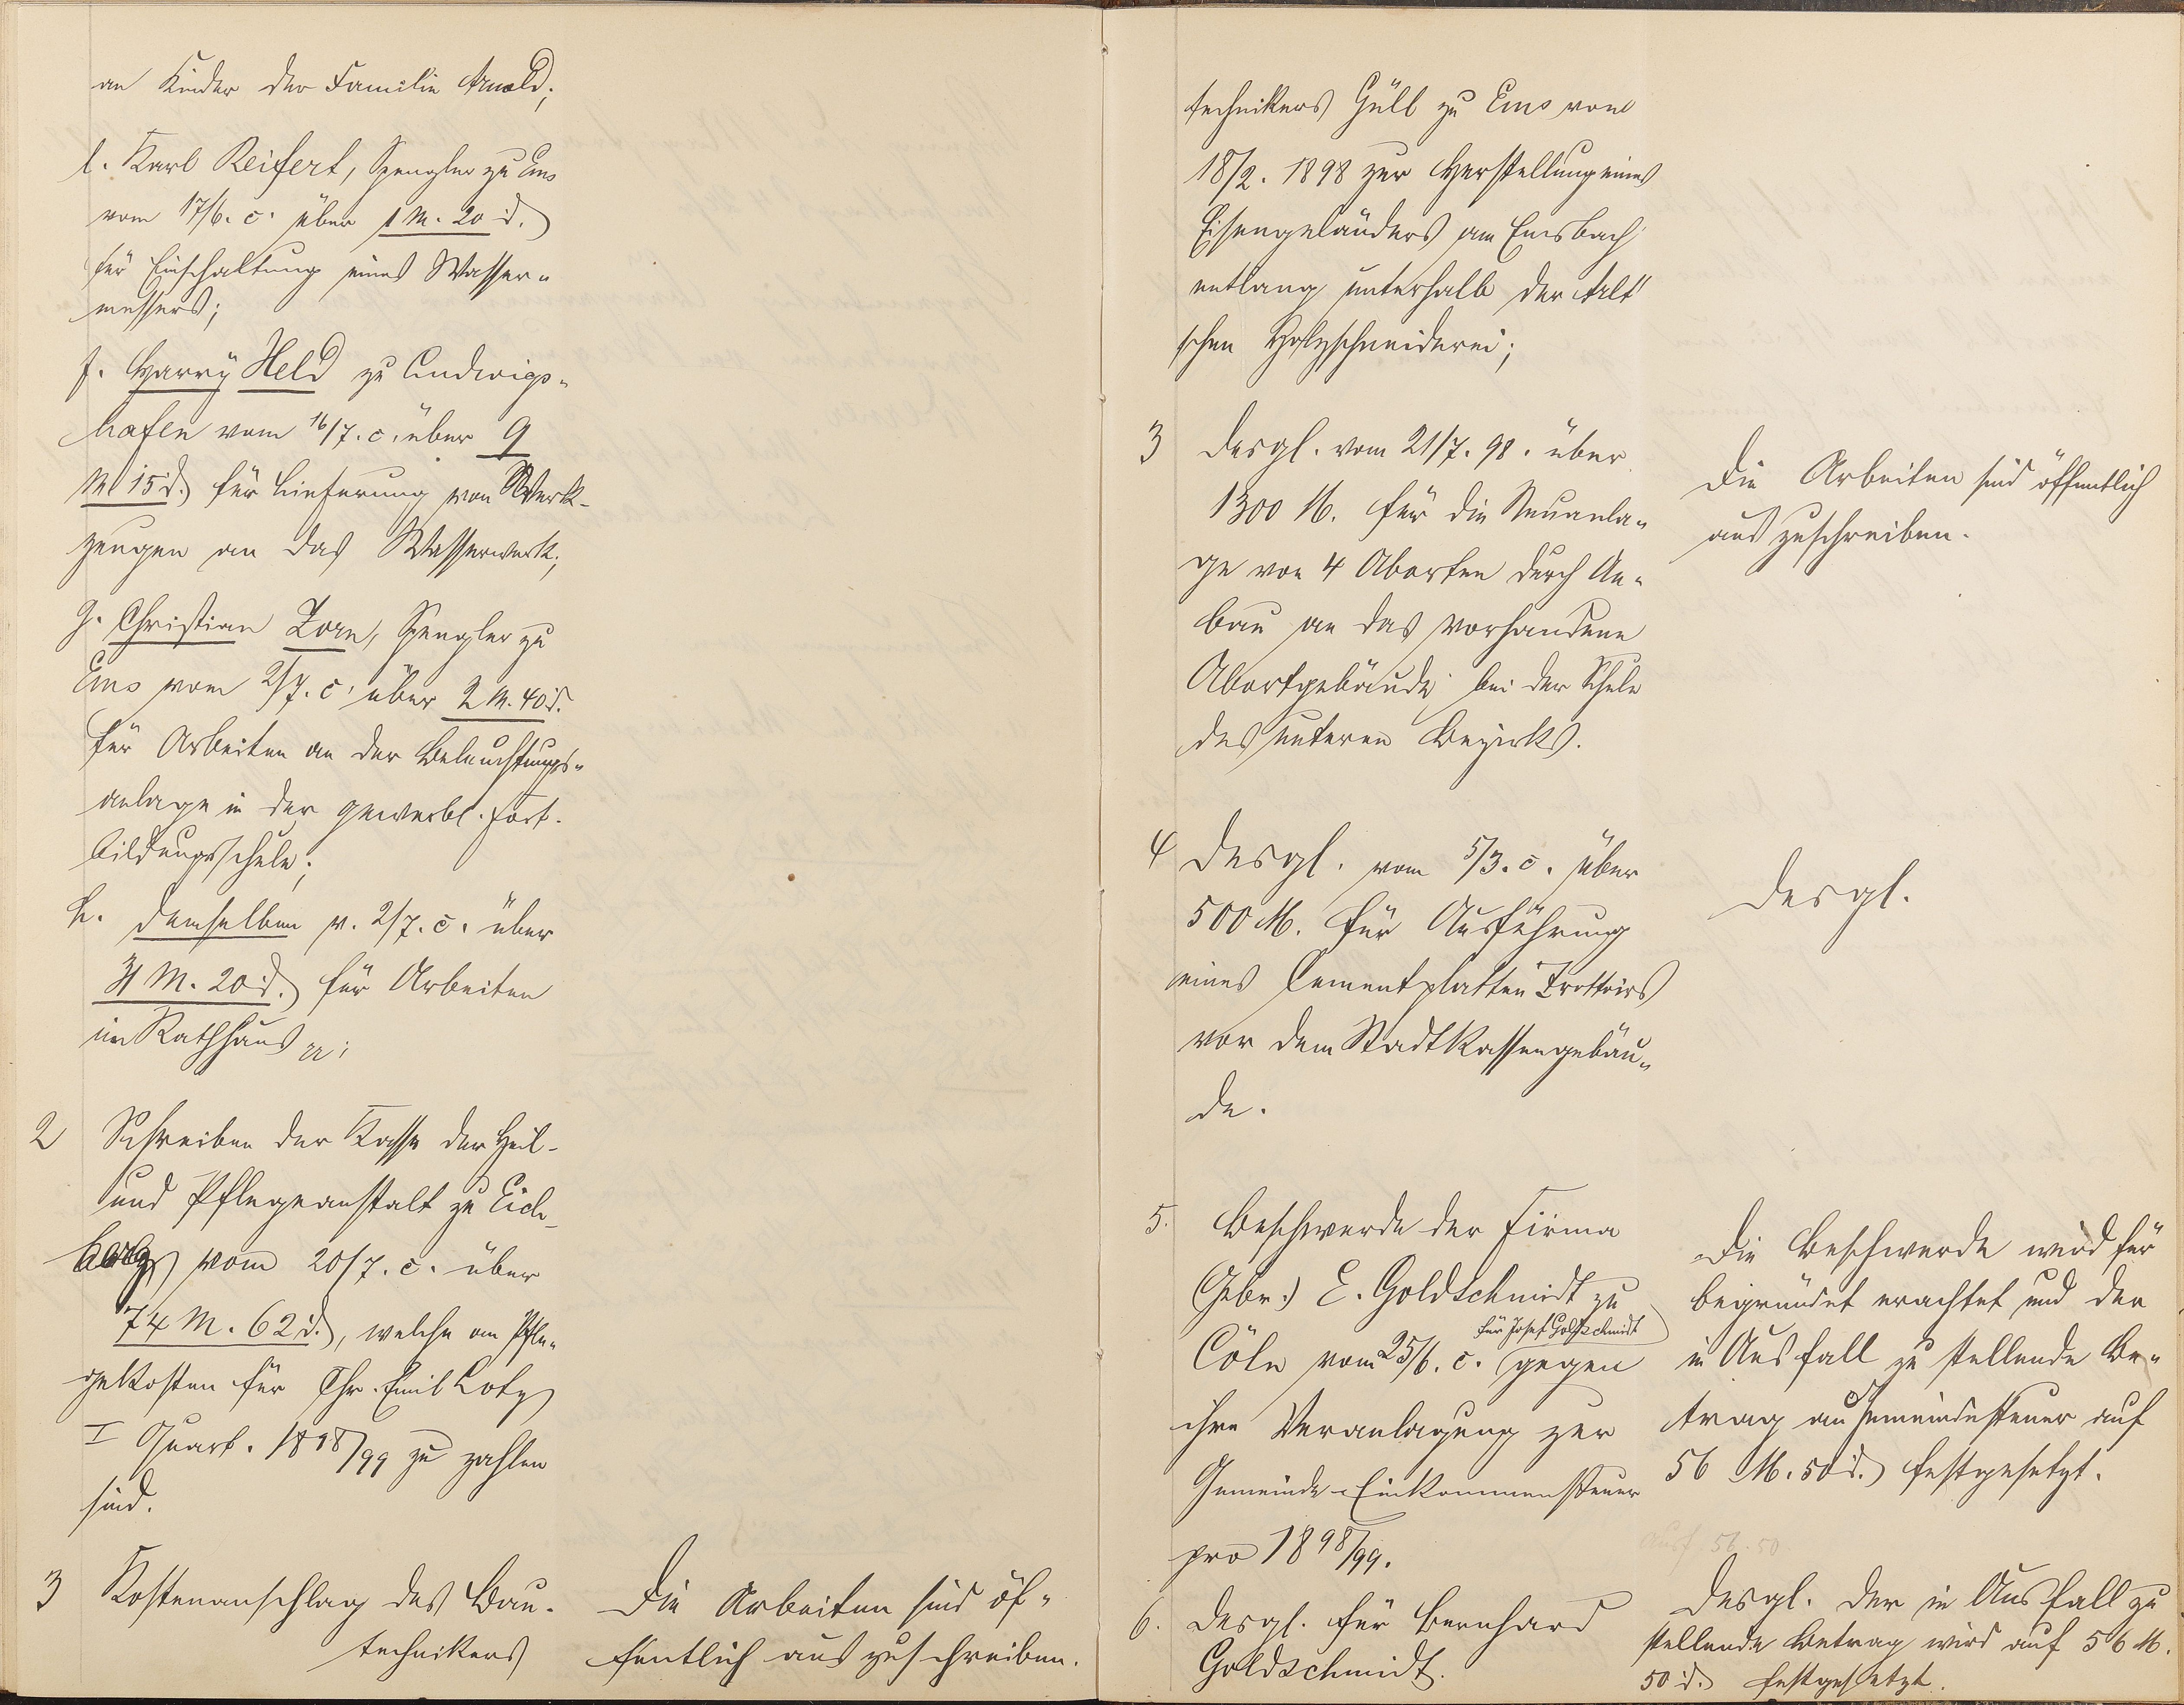 an Kinder der Familie Arnold;
l. Karl Reifert, Spengler zu Ems
vom 17/6. c. über 1 M. 20 d.
für Einschaltung eines Wasser-
messers;
f. Harry Held zu Ludwigs-
hafen vom 16/7. c. über 9
M 15 d. für Lieferung von Werk-
zeugen an das Wasserwerk;
g. Christian Zorn, Spengler zu
Ems vom 2/7. c. über 2 M. 40 d.
für Arbeiten an der Beleuchtungs-
anlage in der gewerbl. Fort-
bildungsschule;
h. demselben v. 2/7. c. über
31 M. 20 d. für Arbeiten
im Rathhaus
2 Schreiben der Kasse der Heil-
und Pflegeanstalt zu Eich-
berg vom 20/7. c. über
74 M. 62 d., welche an Pfle-
gekosten für Chr. Emil Lotz
I Quart. 1898/99 zu zahlen
sind.
3 Kostenanschlag des Bau-
technikers
Die Arbeiten sind öf-
fentlich auszuschreiben.
technikers Güll zu Ems vom
18/2. 1898 zur Herstellung eines
Eisengeländers am Emsbach
entlang unterhalb der Alt'
schen Holzschneiderei;
3 desgl. vom 21/7. 98. über
1300 M. für die Neuanla-
ge von 4 Aborten durch An-
bau an das vorhandene
Abortgebäude bei der Schule
des unteren Bezirks.
Die Arbeiten sind öffentlich
auszuschreiben.
4 desgl. vom 5/3. c. über
500 M. für Ausführung
eines Cementplatten Trottoirs
vor dem Stadtkassengebäu-
de.
desgl.
5. Beschwerde der Firma
Gebr. E. Goldschmidt zu
für Josef Goldschmidt
Cöln vom 25/6. c. gegen
ihre Veranlagung zur
Gemeinde-Einkommensteuer
pro 1898/99.
Die Beschwerde wird für
begründet erachtet und der
in Ausfall zu stellende Be-
trag an Gemeindesteuer auf
56 M. 50 d. festgesetzt.
auf 56.50
6. desgl. für Bernhard
Goldschmidt.
desgl. Der in Ausfall zu
stellende Betrag wird auf 56 M.
50 d. festgesetzt.